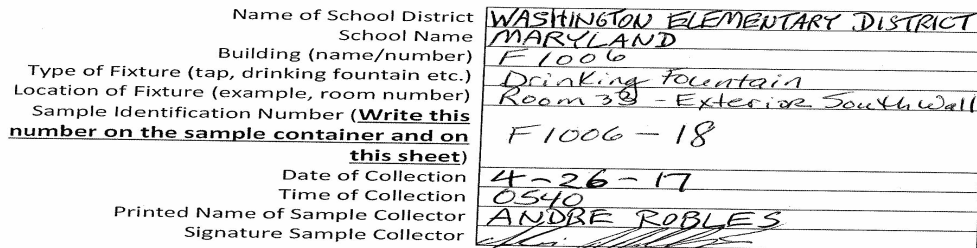 Name of School District WASHINGTON ELEMENTARY DISTRICT
School Name MARYLAND
Building (name/number) F1006
Type of Fixture (tap, drinking fountain etc.) Drinking Fountain
Location of Fixture (example, room number) Room - Exterior South Wall
Sample Identification Number (Write this
number on the sample container and on
this sheet) F1006-18
Date of Collection 4-26-17
Time of Collection 0540
Printed Name of Sample Collector ANDRE ROBLES
Signature Sample Collector